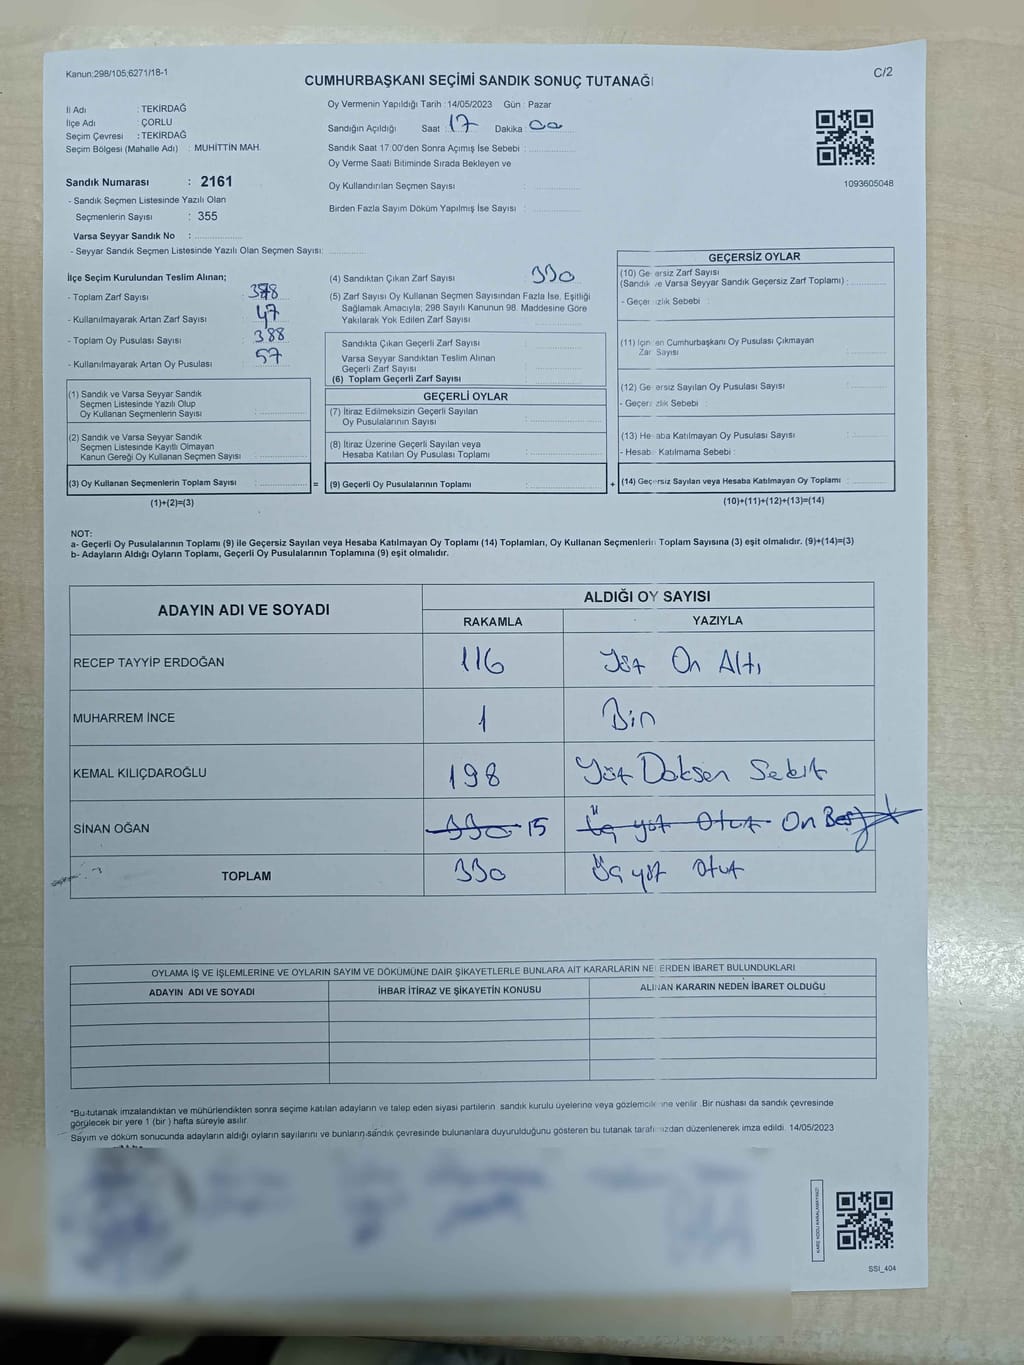 Kanun:298/105;6271/18-1
C/2
CUMHURBAŞKANI SEÇİMİ SANDIK SONUÇ TUTANAĞI
İl Adı : TEKİRDAĞ
İlçe Adı : ÇORLU
Seçim Çevresi : TEKİRDAĞ
Seçim Bölgesi (Mahalle Adı) : MUHİTTİN MAH.
Sandık Numarası : 2161
- Sandık Seçmen Listesinde Yazılı Olan
Seçmenlerin Sayısı : 355
Varsa Seyyar Sandık No :
- Seyyar Sandık Seçmen Listesinde Yazılı Olan Seçmen Sayısı:
Oy Vermenin Yapıldığı Tarih : 14/05/2023 Gün : Pazar
Sandığın Açıldığı Saat : 17 Dakika 00
Sandık Saat 17:00'den Sonra Açımış İse Sebebi :
Oy Verme Saati Bitiminde Sırada Bekleyen ve
Oy Kullandırılan Seçmen Sayısı :
Birden Fazla Sayım Döküm Yapılmış İse Sayısı :
1093605048
İlçe Seçim Kurulundan Teslim Alınan;
- Toplam Zarf Sayısı : 378
- Kullanılmayarak Artan Zarf Sayısı : 47
- Toplam Oy Pusulası Sayısı : 388
- Kullanılmayarak Artan Oy Pusulası : 57
(1) Sandık ve Varsa Seyyar Sandık
Seçmen Listesinde Yazılı Olup
Oy Kullanan Seçmenlerin Sayısı :
(2) Sandık ve Varsa Seyyar Sandık
Seçmen Listesinde Kayıtlı Olmayan
Kanun Gereği Oy Kullanan Seçmen Sayısı :
(3) Oy Kullanan Seçmenlerin Toplam Sayısı :
(1)+(2)=(3)
(4) Sandıktan Çıkan Zarf Sayısı 330
(5) Zarf Sayısı Oy Kullanan Seçmen Sayısından Fazla İse, Eşitliği
Sağlamak Amacıyla; 298 Sayılı Kanunun 98. Maddesine Göre
Yakılarak Yok Edilen Zarf Sayısı
Sandıkta Çıkan Geçerli Zarf Sayısı :
Varsa Seyyar Sandıktan Teslim Alınan
Geçerli Zarf Sayısı :
(6) Toplam Geçerli Zarf Sayısı :
GEÇERLİ OYLAR
(7) İtiraz Edilmeksizin Geçerli Sayılan
Oy Pusulalarının Sayısı :
(8) İtiraz Üzerine Geçerli Sayılan veya
Hesaba Katılan Oy Pusulası Toplamı :
= (9) Geçerli Oy Pusulalarının Toplamı :
GEÇERSİZ OYLAR
(10) Geçersiz Zarf Sayısı
(Sandık ve Varsa Seyyar Sandık Geçersiz Zarf Toplamı) :
- Geçersizlik Sebebi :
(11) İçinden Cumhurbaşkanı Oy Pusulası Çıkmayan
Zarf Sayısı :
(12) Geçersiz Sayılan Oy Pusulası Sayısı :
- Geçersizlik Sebebi :
(13) Hesaba Katılmayan Oy Pusulası Sayısı :
- Hesaba Katılmama Sebebi :
+ (14) Geçersiz Sayılan veya Hesaba Katılmayan Oy Toplamı :
(10)+(11)+(12)+(13)=(14)
NOT:
a- Geçerli Oy Pusulalarının Toplamı (9) ile Geçersiz Sayılan veya Hesaba Katılmayan Oy Toplamı (14) Toplamları, Oy Kullanan Seçmenlerin Toplam Sayısına (3) eşit olmalıdır. (9)+(14)=(3)
b- Adayların Aldığı Oyların Toplamı, Geçerli Oy Pusulalarının Toplamına (9) eşit olmalıdır.
ADAYIN ADI VE SOYADI
ALDIĞI OY SAYISI
RAKAMLA YAZIYLA
RECEP TAYYİP ERDOĞAN 116 Yüz On Altı
MUHARREM İNCE 1 Bir
KEMAL KILIÇDAROĞLU 198 Yüz Doksan Sekiz
SİNAN OĞAN 330 15 Üç yüz Otuz On Beş
TOPLAM 330 Üç yüz Otuz
OYLAMA İŞ VE İŞLEMLERİNE VE OYLARIN SAYIM VE DÖKÜMÜNE DAİR ŞİKAYETLERLE BUNLARA AİT KARARLARIN NELERDEN İBARET BULUNDUKLARI
ADAYIN ADI VE SOYADI İHBAR İTİRAZ VE ŞİKAYETİN KONUSU ALINAN KARARIN NEDEN İBARET OLDUĞU
*Bu tutanak imzalandıktan ve mühürlendikten sonra seçime katılan adayların ve talep eden siyasi partilerin sandık kurulu üyelerine veya gözlemcilerine verilir .Bir nüshası da sandık çevresinde
görülecek bir yere 1 (bir ) hafta süreyle asılır.
Sayım ve döküm sonucunda adayların aldığı oyların sayılarını ve bunların sandık çevresinde bulunanlara duyurulduğunu gösteren bu tutanak tarafımızdan düzenlenerek imza edildi. 14/05/2023
KARE KODU KARALAMAYINIZ!
SSI_404